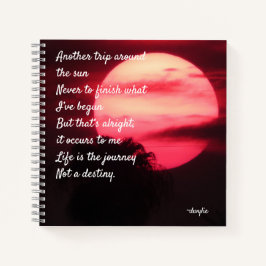 Another trip around
the sun
Never to finish what
I've begun
But that's alright,
it occurs to me
Life is the journey
Not a destiny.